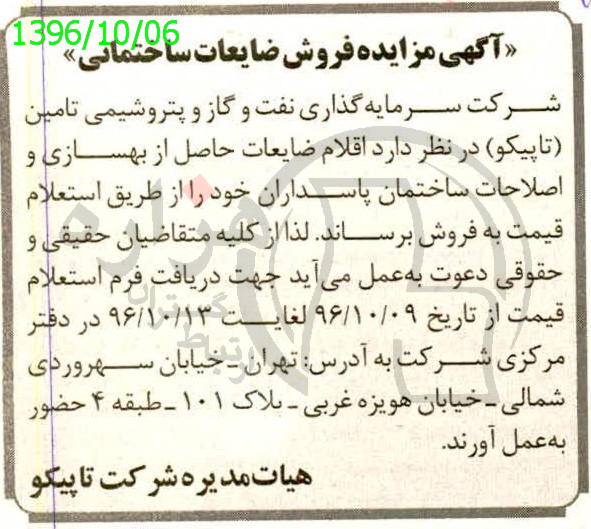 1396/10/06
«آگهی مزایده فروش ضایعات ساختمانی»
شرکت سرمایه‌گذاری نفت و گاز و پتروشیمی تامین
(تاپیکو) در نظر دارد اقلام ضایعات حاصل از بهسازی و
اصلاحات ساختمان پاسداران خود را از طریق استعلام
قیمت به فروش برساند. لذا از کلیه متقاضیان حقیقی و
حقوقی دعوت به‌عمل می‌آید جهت دریافت فرم استعلام
قیمت از تاریخ ۹۶/۱۰/۰۹ لغایت ۹۶/۱۰/۱۳ در دفتر
مرکزی شرکت به آدرس: تهران ـ خیابان سهروردی
شمالی ـ خیابان هویزه غربی ـ پلاک ۱۰۱ ـ طبقه ۴ حضور
به‌عمل آورند.
هیات مدیره شرکت تاپیکو